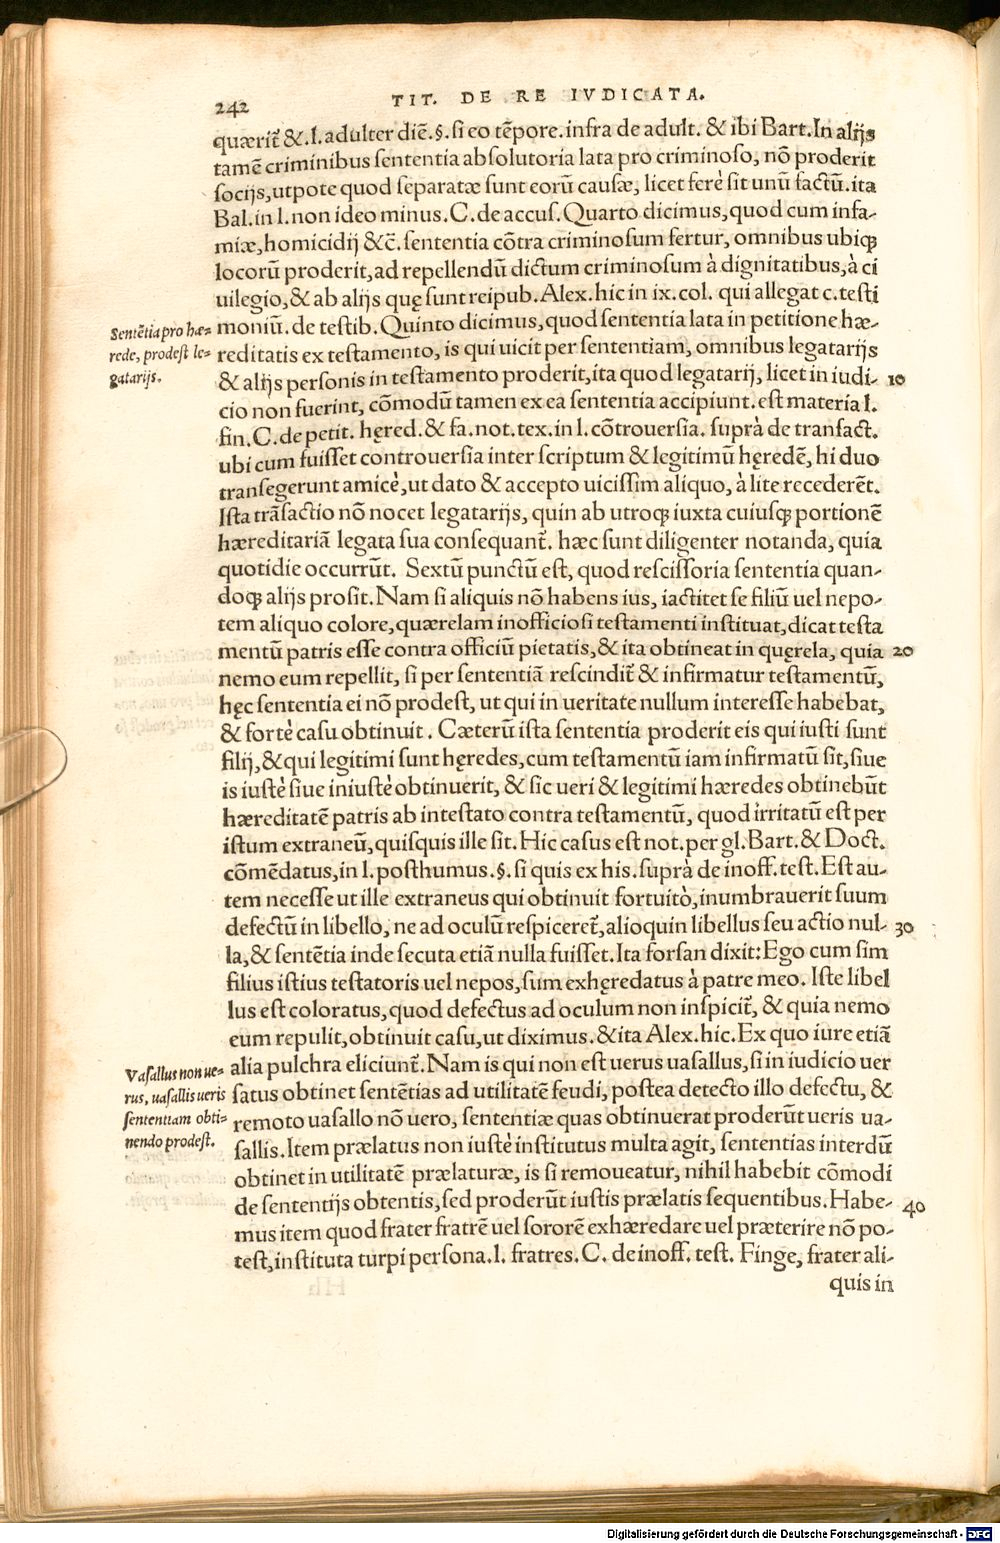 242 TIT. DE RE IVDICATA.
quærit̃ &. l. adulter diẽ. §. si eo tẽpore. infra de adult. & ibi Bart. In alijs
tamẽ criminibus sententia absolutoria lata pro criminoso, nõ proderit
socijs, utpote quod separatæ sunt eorũ causæ, licet ferè sit unũ factũ. ita
Bal. in l. non ideo minus. C. de accus. Quarto dicimus, quod cum infa-
miæ, homicidij &c̃. sententia cõtra criminosum fertur, omnibus ubiqꝫ
locorũ proderit, ad repellendũ dictum criminosum à dignitatibus, à ci
uilegio, & ab alijs quę sunt reipub. Alex. hic in ix. col. qui allegat c. testi
moniũ. de testib. Quinto dicimus, quod sententia lata in petitione hæ-
reditatis ex testamento, is qui uicit per sententiam, omnibus legatarijs
& alijs personis in testamento proderit, ita quod legatarij, licet in iudi- 10
cio non fuerint, cõmodũ tamen ex ea sententia accipiunt. est materia l.
fin. C. de petit. hęred. & fa. not. tex. in l. cõtrouersia. suprà de transact.
ubi cum fuisset controuersia inter scriptum & legitimũ hęredẽ, hi duo
transegerunt amicè, ut dato & accepto uicissim aliquo, à lite recederẽt.
Ista trãsactio nõ nocet legatarijs, quin ab utroqꝫ iuxta cuiusqꝫ portionẽ
hæreditariã legata sua consequant̃. hæc sunt diligenter notanda, quia
quotidie occurrũt. Sextũ punctũ est, quod rescissoria sententia quan-
doqꝫ alijs prosit. Nam si aliquis nõ habens ius, iactitet se filiũ uel nepo-
tem aliquo colore, quærelam inofficiosi testamenti instituat, dicat testa
mentũ patris esse contra officiũ pietatis, & ita obtineat in quęrela, quia 20
nemo eum repellit, si per sententiã rescindit̃ & infirmatur testamentũ,
hęc sententia ei nõ prodest, ut qui in ueritate nullum interesse habebat,
& fortè casu obtinuit. Cæterũ ista sententia proderit eis qui iusti sunt
filij, & qui legitimi sunt hęredes, cum testamentũ iam infirmatũ sit, siue
is iustè siue iniustè obtinuerit, & sic ueri & legitimi hæredes obtinebũt
hæreditatẽ patris ab intestato contra testamentũ, quod irritatũ est per
istum extraneũ, quisquis ille sit. Hic casus est not. per gl. Bart. & Doct.
cõmẽdatus, in l. posthumus. §. si quis ex his. suprà de inoff. test. Est au-
tem necesse ut ille extraneus qui obtinuit fortuitò, inumbrauerit suum
defectũ in libello, ne ad oculũ respiceret̃, alioquin libellus seu actio nul- 30
la, & sentẽtia inde secuta etiã nulla fuisset. Ita forsan dixit: Ego cum sim
filius istius testatoris uel nepos, sum exhęredatus à patre meo. Iste libel
lus est coloratus, quod defectus ad oculum non inspicit̃, & quia nemo
eum repulit, obtinuit casu, ut diximus. & ita Alex. hic. Ex quo iure etiã
alia pulchra eliciunt̃. Nam is qui non est uerus uasallus, si in iudicio uer
satus obtinet sentẽtias ad utilitatẽ feudi, postea detecto illo defectu, &
remoto uasallo nõ uero, sententiæ quas obtinuerat proderũt ueris ua-
sallis. Item prælatus non iustè institutus multa agit, sententias interdũ
obtinet in utilitatẽ prælaturæ, is si remoueatur, nihil habebit cõmodi
de sententijs obtentis, sed proderũt iustis prælatis sequentibus. Habe- 40
mus item quod frater fratrẽ uel sororẽ exhæredare uel præterire nõ po-
test, instituta turpi persona. l. fratres. C. de inoff. test. Finge, frater ali-
quis in
Sentẽtia pro hæ-
rede, prodest le-
gatarijs.
Vasallus non ue-
rus, uasallis ueris
sententiam obti-
nendo prodest.
Digitalisierung gefördert durch die Deutsche Forschungsgemeinschaft - DFG